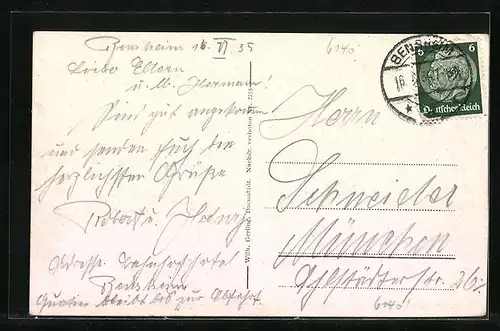 Bensheim 16. VI. 35
6145
Liebe Eltern
u. Hermann!
Sind gut angekommen
und senden Euch die
herzlichsten Grüße
Robert u.
Adresse Bahnhofhotel
Bensheim
Quartier bleibt bis zur Abfahrt.
Wilh. Gerling, Darmstadt. Nachdr. verboten
BENSHEIM
6 6
Deutsches Reich
Herrn
Schneider
München
str. 26
6145